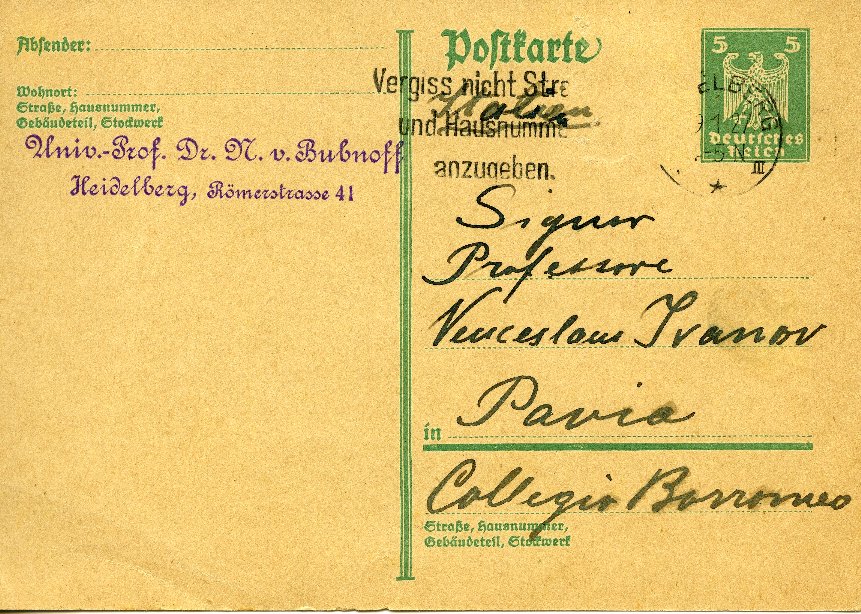 Absender:
Wohnort:
Straße, Hausnummer,
Gebäudeteil, Stockwerk
Univ.-Prof. Dr. N. v. Bubnoff
Heidelberg, Römerstrasse 41
Postkarte
Vergiss nicht Stre
Italien
und Hausnumme
anzugeben.
5 5
Deutsches
Reich
ELBERG
III
Signor
Professore
Venceslaus Ivanov
in Pavia
Collegio Borromeo
Straße, Hausnummer,
Gebäudeteil, Stockwerk